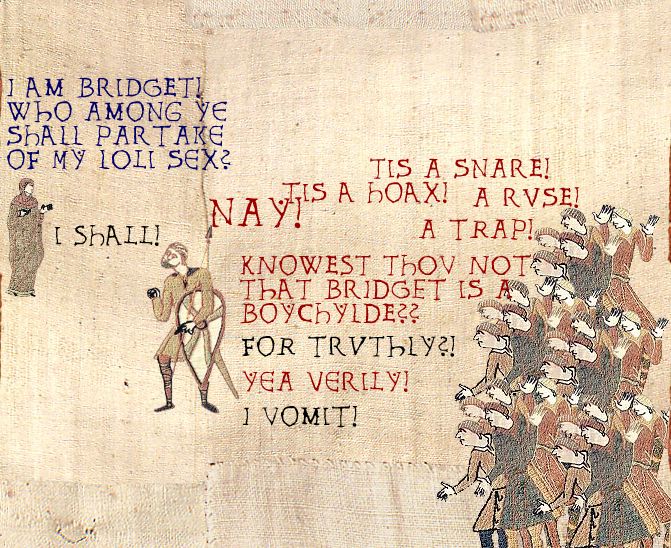 I AM BRIDGET!
WHO AMONG YE
SHALL PARTAKE
OF MY LOLI SEX?
I SHALL!
NAY!
TIS A SNARE!
TIS A HOAX! A RVSE!
A TRAP!
KNOWEST THOV NOT
THAT BRIDGET IS A
BOYCHYLDE??
FOR TRVTHLY?!
YEA VERILY!
I VOMIT!